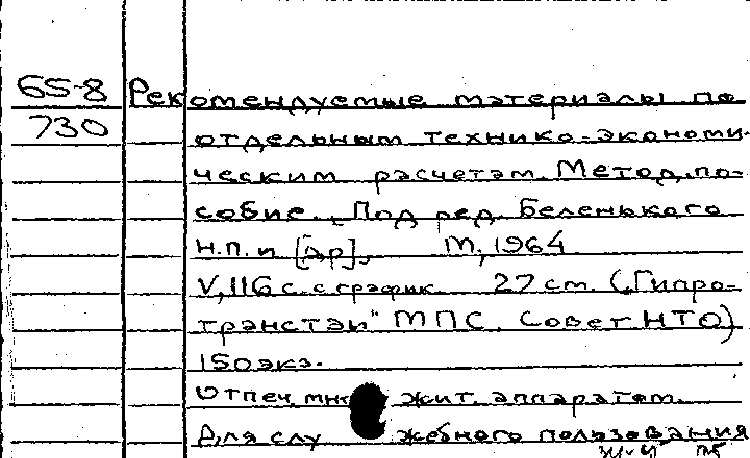 65-8 Рекомендуемые материалы по
730 отдельным технико-экономи-
ческим расчетам. Метод. по-
собие. Под ред. Беленького
Н.П. и [др]. М, 1964
V, 116 с. с график. 27 см. ("Гипро-
транстэи" МПС. Совет НТО)
150 экз.
Отпеч. мн жит. аппаратом.
Для слу жебного пользования